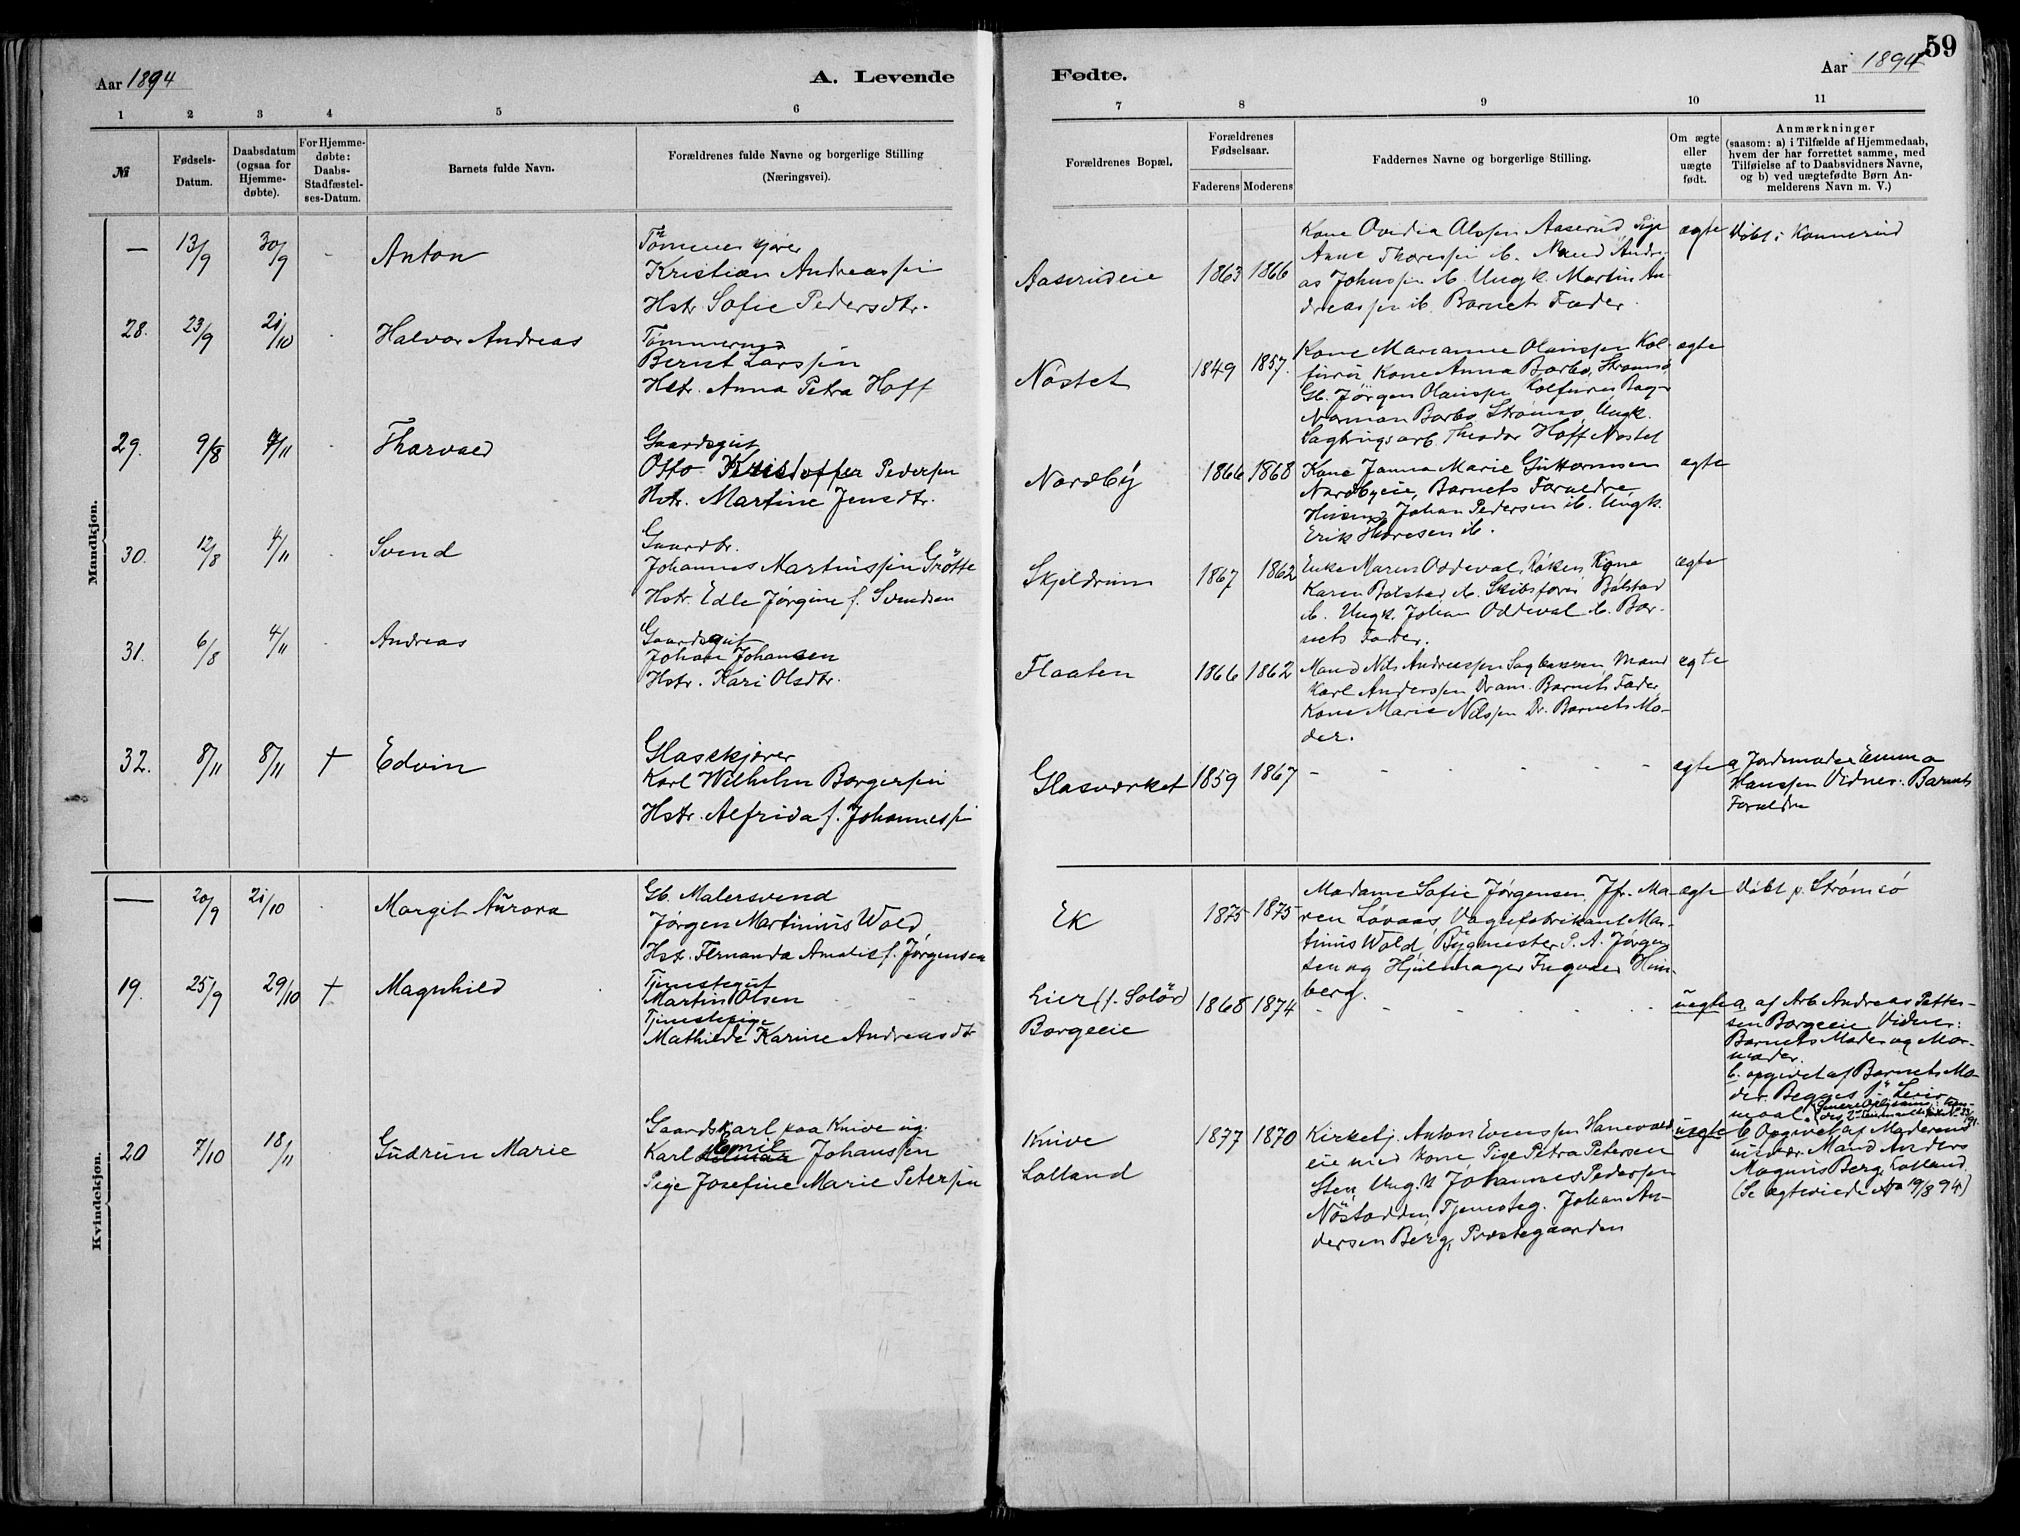 59
Aar 1894
A. Levende
Fødte.
Aar 1894
1 2 3 4 5 6
7 8 9 10 11
№
Fødsels-
Datum.
Daabsdatum
(ogsaa for
Hjemme-
døbte).
For Hjemme-
døbte:
Daabs-
Stadfæstel-
ses-Datum.
Barnets fulde Navn.
Forældrenes fulde Navne og borgerlige Stilling
(Næringsvei).
Forældrenes Bopæl.
Forældrenes
Fødselsaar.
Faderens Moderens
Faddernes Navne og borgerlige Stilling.
Om ægte
eller
uægte
født.
Anmærkninger
(saasom: a) i Tilfælde af Hjemmedaab,
hvem der har forrettet samme, med
Tilføielse af to Daabsvidners Navne,
og b) ved uægtefødte Børn An-
melderens Navn m. V.)
Mandkjøn.
— 13/9 30/9 Anton
Tømmerkjører
Kristian Andreassen
Hstr Sofie Pedersdtr.
Aaserudeie 1863 1866
Kone Ovidia Olssen Aaserud Pige
Anne Thoressen ib. Mand Andre-
as Johnssen ib Ungk. Martin An-
dreassen ib. Barnets Fader.
ægte
Døbt i Konnerud
28. 23/9 21/10 Halvor Andreas
Tømmermd
Bernt Larssen
Hstr. Anna Petra Hoff
Nøstet 1849 1857.
Kone Marianne Olaussen Kol-
Kone Anna Borbo, Strømsø
Gb. Jørgen Olaussen
Norman Borbo Strømsø, Ungk.
Sagbrugsarb. Theodor Hoff Nøstet
ægte
29. 9/8 4/11 Thorvald
Gaardsgut
Otto Kristoffer Pedersen
Hstr. Martine Jensdtr.
Nordby 1866 1868
Kone Janna Marie Guttormsen
Nordbyeie, Barnets Forældre,
Husmd Johan Pedersen ib. Ungk.
Erik Thoresen ib.
ægte
30. 12/8 4/11 Svend
Gaardbr.
Johannes Martinssen Grøtte
Hstr. Edle Jørgine f. Svendsen
Skjeldrum 1867 1862
Enke Maren Oddeval, Røken, Kone
Karen Bølstad ib. Skibsfører Bølstad
ib. Ungk. Johan Oddeval ib. Bar-
nets Fader.
ægte
31. 6/8 4/11 Andreas
Gaardsgut
Johan Johansen
Hstr. Kari Olsdtr.
Flaaten 1866 1862
Mand Nils Andreassen Mand
Karl Anderssen Dram. Barnets Fader,
Kone Marie Nilssen Dr. Barnets Mo-
der.
ægte
32. 8/11 8/11 † Edvin
Glaskjører
Karl Wilhelm Borgersen
Hstr. Alfrida f. Johannessen
Glasværket 1859 1867 - - - - - -
ægte
a. Jordemoder Emma
Hanssen Vidner: Barnets
Forældre
Kvindekjøn.
— 20/9 21/10 Margit Aurora
Gb. Malersvend
Jørgen Martinius Wold
Hstr. Fernanda Amalie f. Jørgensen
Ek 1875 1875
Madame Sofie Jørgensen, Jfr. Ma-
ren Løvaas, Vognfabrikant Mar-
tinius Wold, Bygmester P. A. Jørgen-
sen og Hjulmager Ingvald Heim-
berg.
ægte
Døbt p. Strømsö
19. 25/9 29/10 † Magnhild
Tjenestegut
Martin Olsen
Tjenestepige
Mathilde Karine Andreasdtr
Lier (f. Solør)
Borgeeie
1868 1874 - - - - - -
uægte
a. af Arb. Andreas Petter-
sen Borgeeie Vidner:
Barnets Moder og Mor-
moder.
b. opgivet af Barnets Mo-
der. Begges 1ste Leier-
maal.
20 7/10 18/11 Gudrun Marie
Gaardskarl paa Knive ug.
Karl Emil Johanssen
Pige Josefine Marie Petersen
Knive
Lolland
1877 1870
Kirketj. Anton Evenssen Hanevold-
eie med Kone Pige Petra Petersen
Sten, Ung.k Johannes Pederssen
Nøstodden, Tjenesteg. Johan An-
dersen Berg, Præstegaarden
uægte
b. Opgivet af Moderen
Mand Anders
Magnus Berg, Lolland.
(Se ægteviede No 19/8 94)